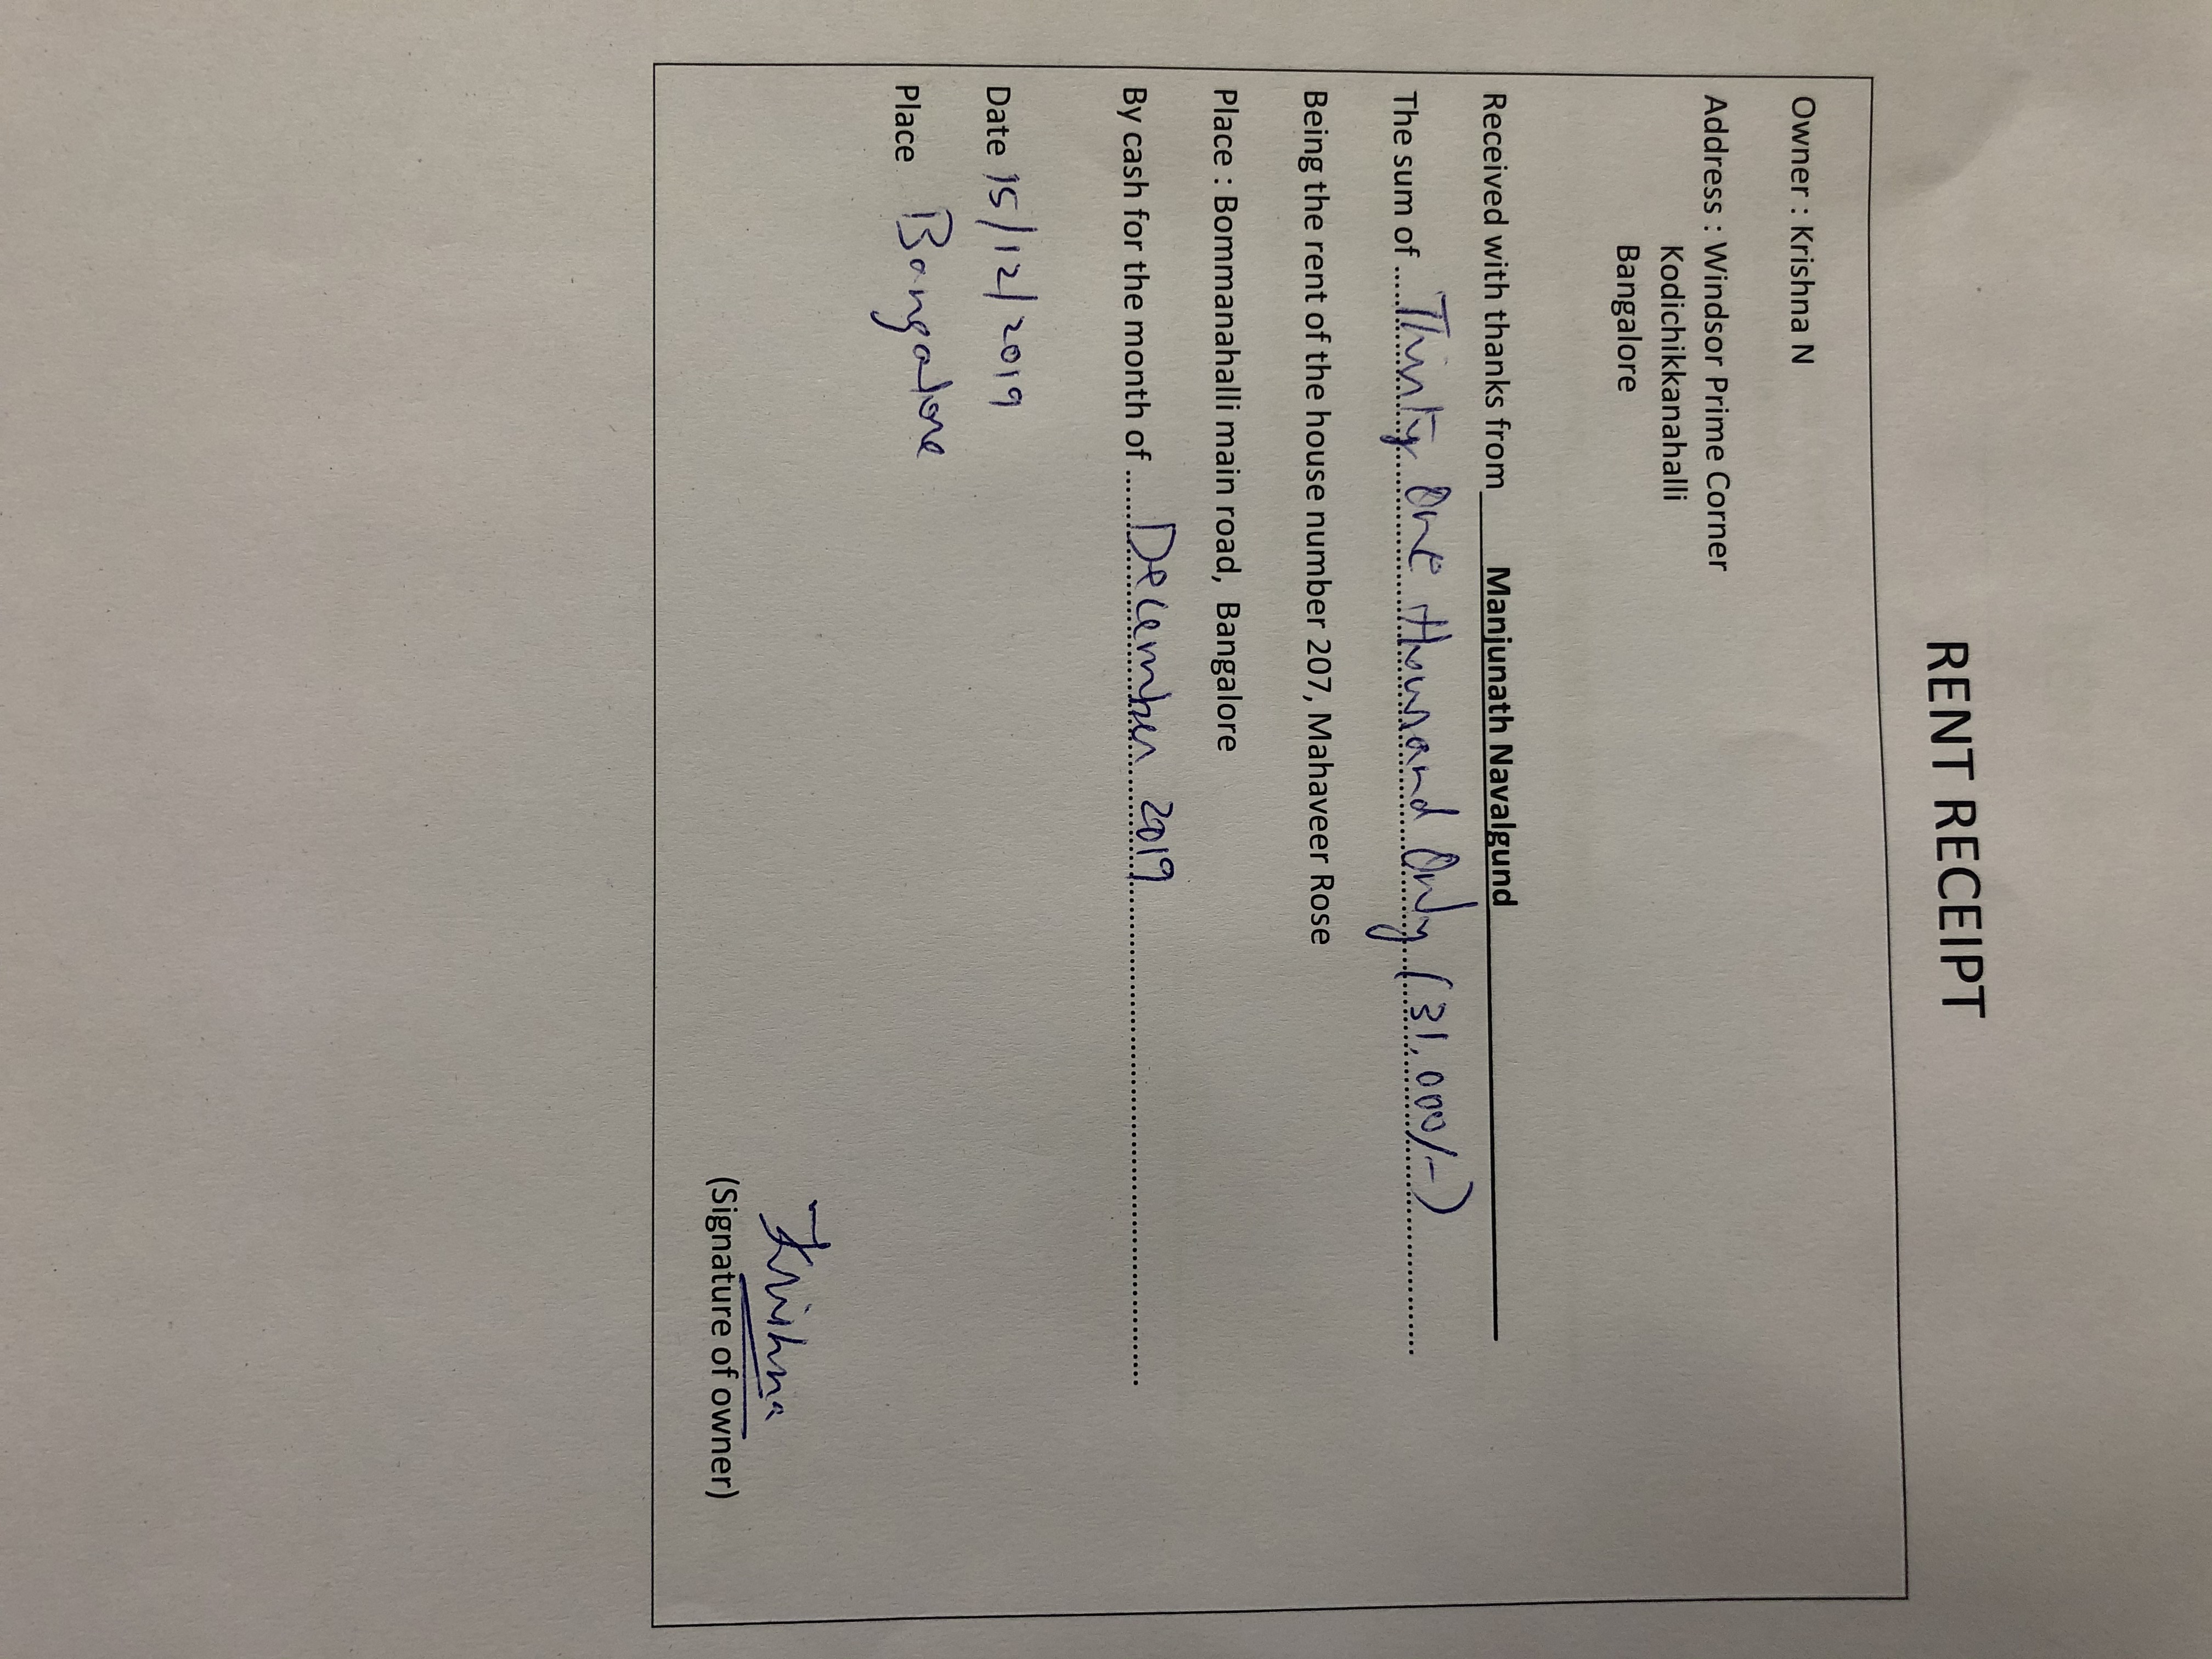 RENT RECEIPT
Owner : Krishna N
Address : Windsor Prime Corner
Kodichikkanahalli
Bangalore
Received with thanks from ____Manjunath Navalgund____
The sum of ....Thirty One Thousand Only (31,000/-)....
Being the rent of the house number 207, Mahaveer Rose
Place : Bommanahalli main road, Bangalore
By cash for the month of ......December 2019......
Date 15/12/2019
Place Bangalore
Krishna
(Signature of owner)